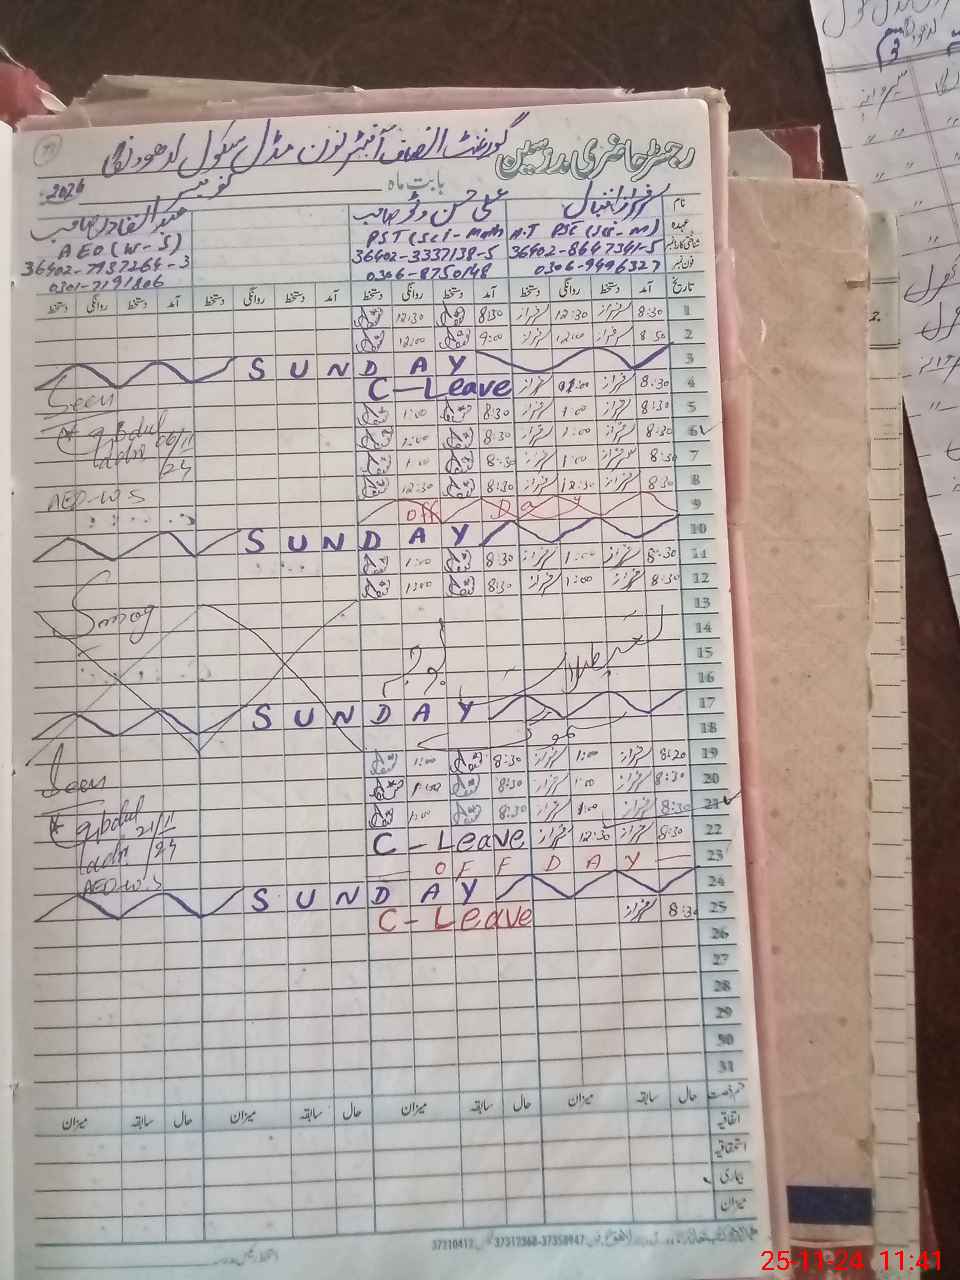 رجسٹر حاضری مدرسین گورنمنٹ الصاف آفٹر نون مڈل سکول
بابت ماہ نومبر 2024
نام سرفراز اقبال علی حسن وٹو صاحب عبدالقادر صاحب
عہدہ H.T PST (Sci-M) PST (Sci-Math) AEO (W-S)
شناختی کارڈ نمبر 36402-8647341-5 36402-3337138-5 36402-7937264-3
فون نمبر 0306-9496327 0306-8750148 0301-7191806
تاریخ آمد دستخط روانگی دستخط آمد دستخط روانگی دستخط آمد دستخط روانگی دستخط آمد دستخط روانگی دستخط
1 8:30 سرفراز 12:30 سرفراز 8:30 12:30
2 8:30 سرفراز 12:00 سرفراز 9:00 12:00
3 SUNDAY
4 8:30 سرفراز 01:00 سرفراز C-Leave Seen
5 8:30 سرفراز 1:00 سرفراز 8:30 1:00
6 8:30 سرفراز 1:00 سرفراز 8:30 1:00 Abdul
7 8:30 سرفراز 1:00 سرفراز 8:30 1:00 06/11/24
8 8:30 سرفراز 12:30 سرفراز 8:30 12:30 AEO-W.S
9 Off Day
10 SUNDAY
11 8:30 سرفراز 1:00 سرفراز 8:30 1:00
12 8:30 سرفراز 1:00 سرفراز 8:30 1:00
13 Smog
14
15
16
17 SUNDAY
18
19 8:20 سرفراز 1:00 سرفراز 8:30 1:00 Seen
20 8:30 سرفراز 1:00 سرفراز 8:30 1:00
21 8:30 سرفراز 1:00 سرفراز 8:30 1:00 Abdul 21/11/24
22 8:30 سرفراز 12:30 سرفراز C-Leave
23 OFF DAY AEO-W.S
24 SUNDAY
25 8:30 سرفراز C-Leave
26
27
28
29
30
31
حال سابقہ میزان حال سابقہ میزان حال سابقہ میزان حال سابقہ میزان
اتفاقیہ
استحقاقیہ
بیماری
میزان
37210412 37312368-37358947
25-11-24 11:41